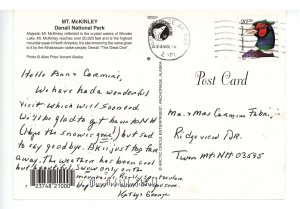 MT. McKINLEY
Denali National Park
Majestic Mt. McKinley reflected in the crystal waters of Wonder
Lake. Mt. McKinley reaches over 20,320 feet and is the highest
mountain peak in North America. It's also known by the name given
to it by the Athabascan native people, Denali "The Great One".
Photo © Allen Prier/ Accent Alaska
Hello Ann & Carmine,
We have had a wonderful
visit which will soon end
We'll be glad to get home to NH
(Hope the snow is gone!) but sad
to say good bye. AK is just too far
away. The weather has been cool
but beautiful snow only on the
mountains. Really spectacular
Kathy & George
23748 21000
© ARCTIC CIRCLE ENTERPRISES ANCHORAGE, ALASKA
Post Card
Mr. & Mrs Carmine
Ridgeview DR.
Twin Mt NH 03595